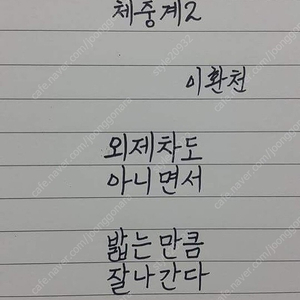 체중계2
이환천
외제차도
아니면서
밟는만큼
잘나간다